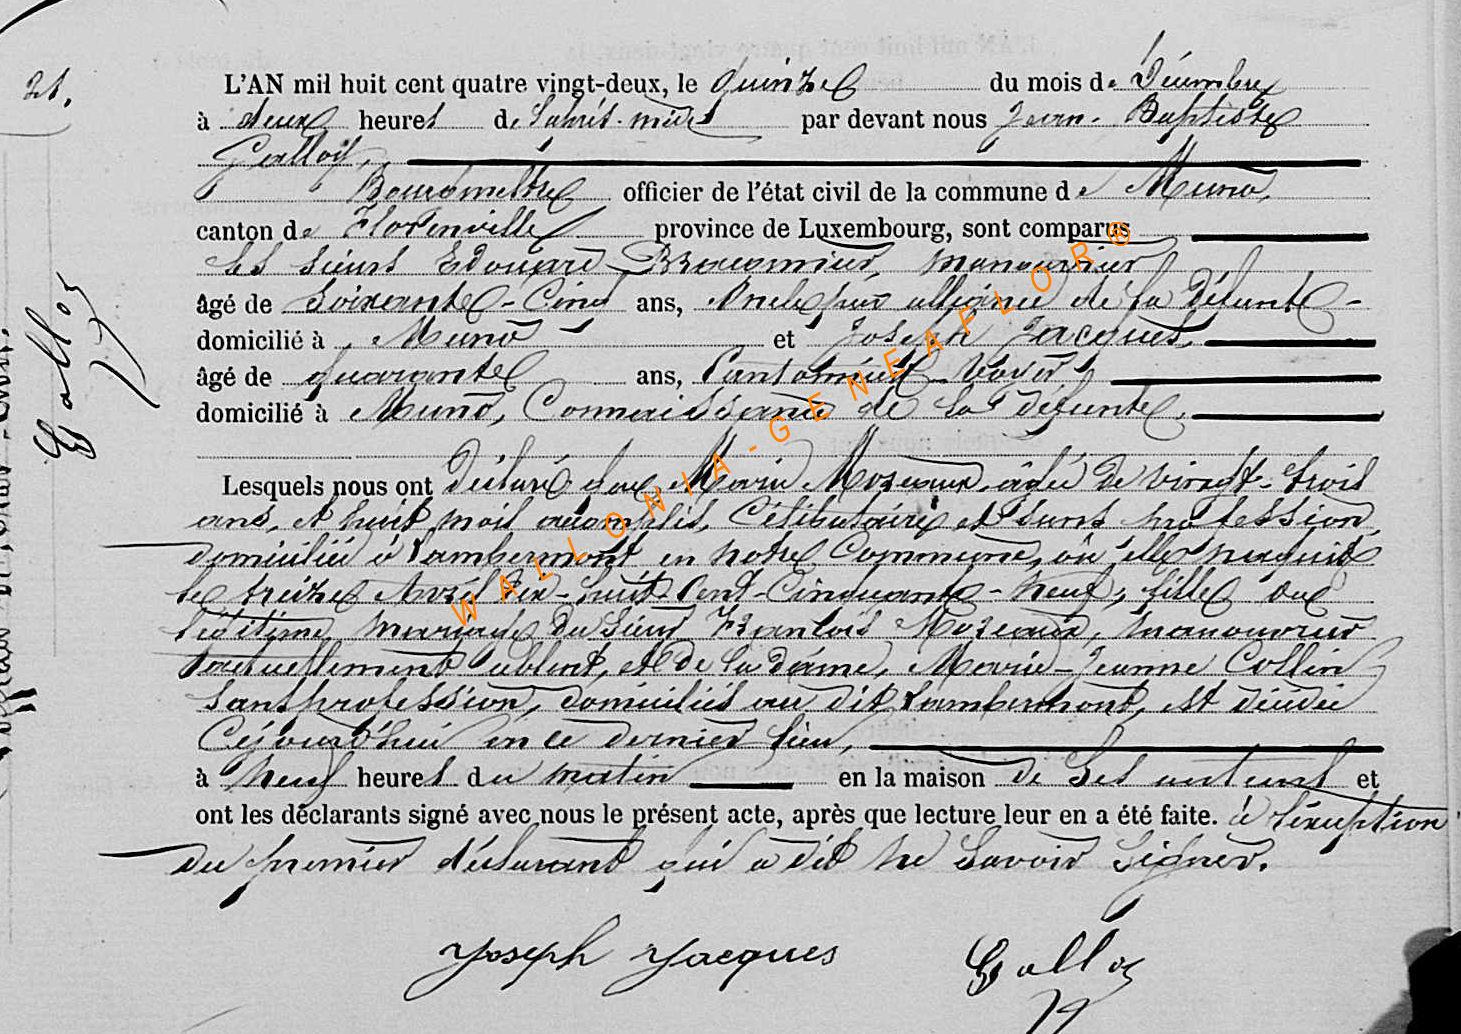 21.
L'AN mil huit cent quatre vingt-deux, le quinze du mois de Décembre
à deux heures de l'après-midi par devant nous Jean-Baptiste
Galloy,
Bourgmestre officier de l'état civil de la commune de Muno,
canton de Florenville province de Luxembourg, sont comparus
les sieurs Edouard Braconnier, manouvrier
âgé de soixante-cinq ans, oncle par alliance de la défunte
domicilié à Muno et Joseph Jacques,
âgé de quarante ans, Cantonnier
domicilié à Muno, Connaissance de la défunte,
Lesquels nous ont déclaré que Marie Mozeaux, âgée de vingt-trois
ans, et huit mois accomplis, Célibataire et sans profession
domiciliée à Lambermont en notre Commune, où elle naquit
le treize Avril dix-huit-cent-cinquante-neuf, fille du
légitime mariage du sieur François Mozeaux, manouvrier
actuellement absent, et de la dame, Marie-Jeanne Collin
sans profession, domiciliés au dit Lambermont, est décédée
Cejourd'hui en ce dernier lieu,
à neuf heures du matin en la maison de ses auteurs et
ont les déclarants signé avec nous le présent acte, après que lecture leur en a été faite. à l'exception
du premier déclarant qui a dit ne savoir signer.
Joseph Jacques Galloy
Galloy
WALLONIA-GENEAFLOR®